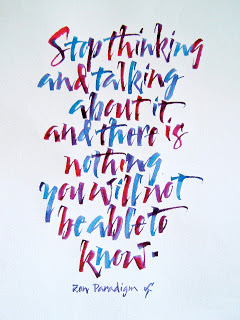 Stop thinking
and talking
about it
and there is
nothing
you will not
be able to
know.
Zen Paradigm